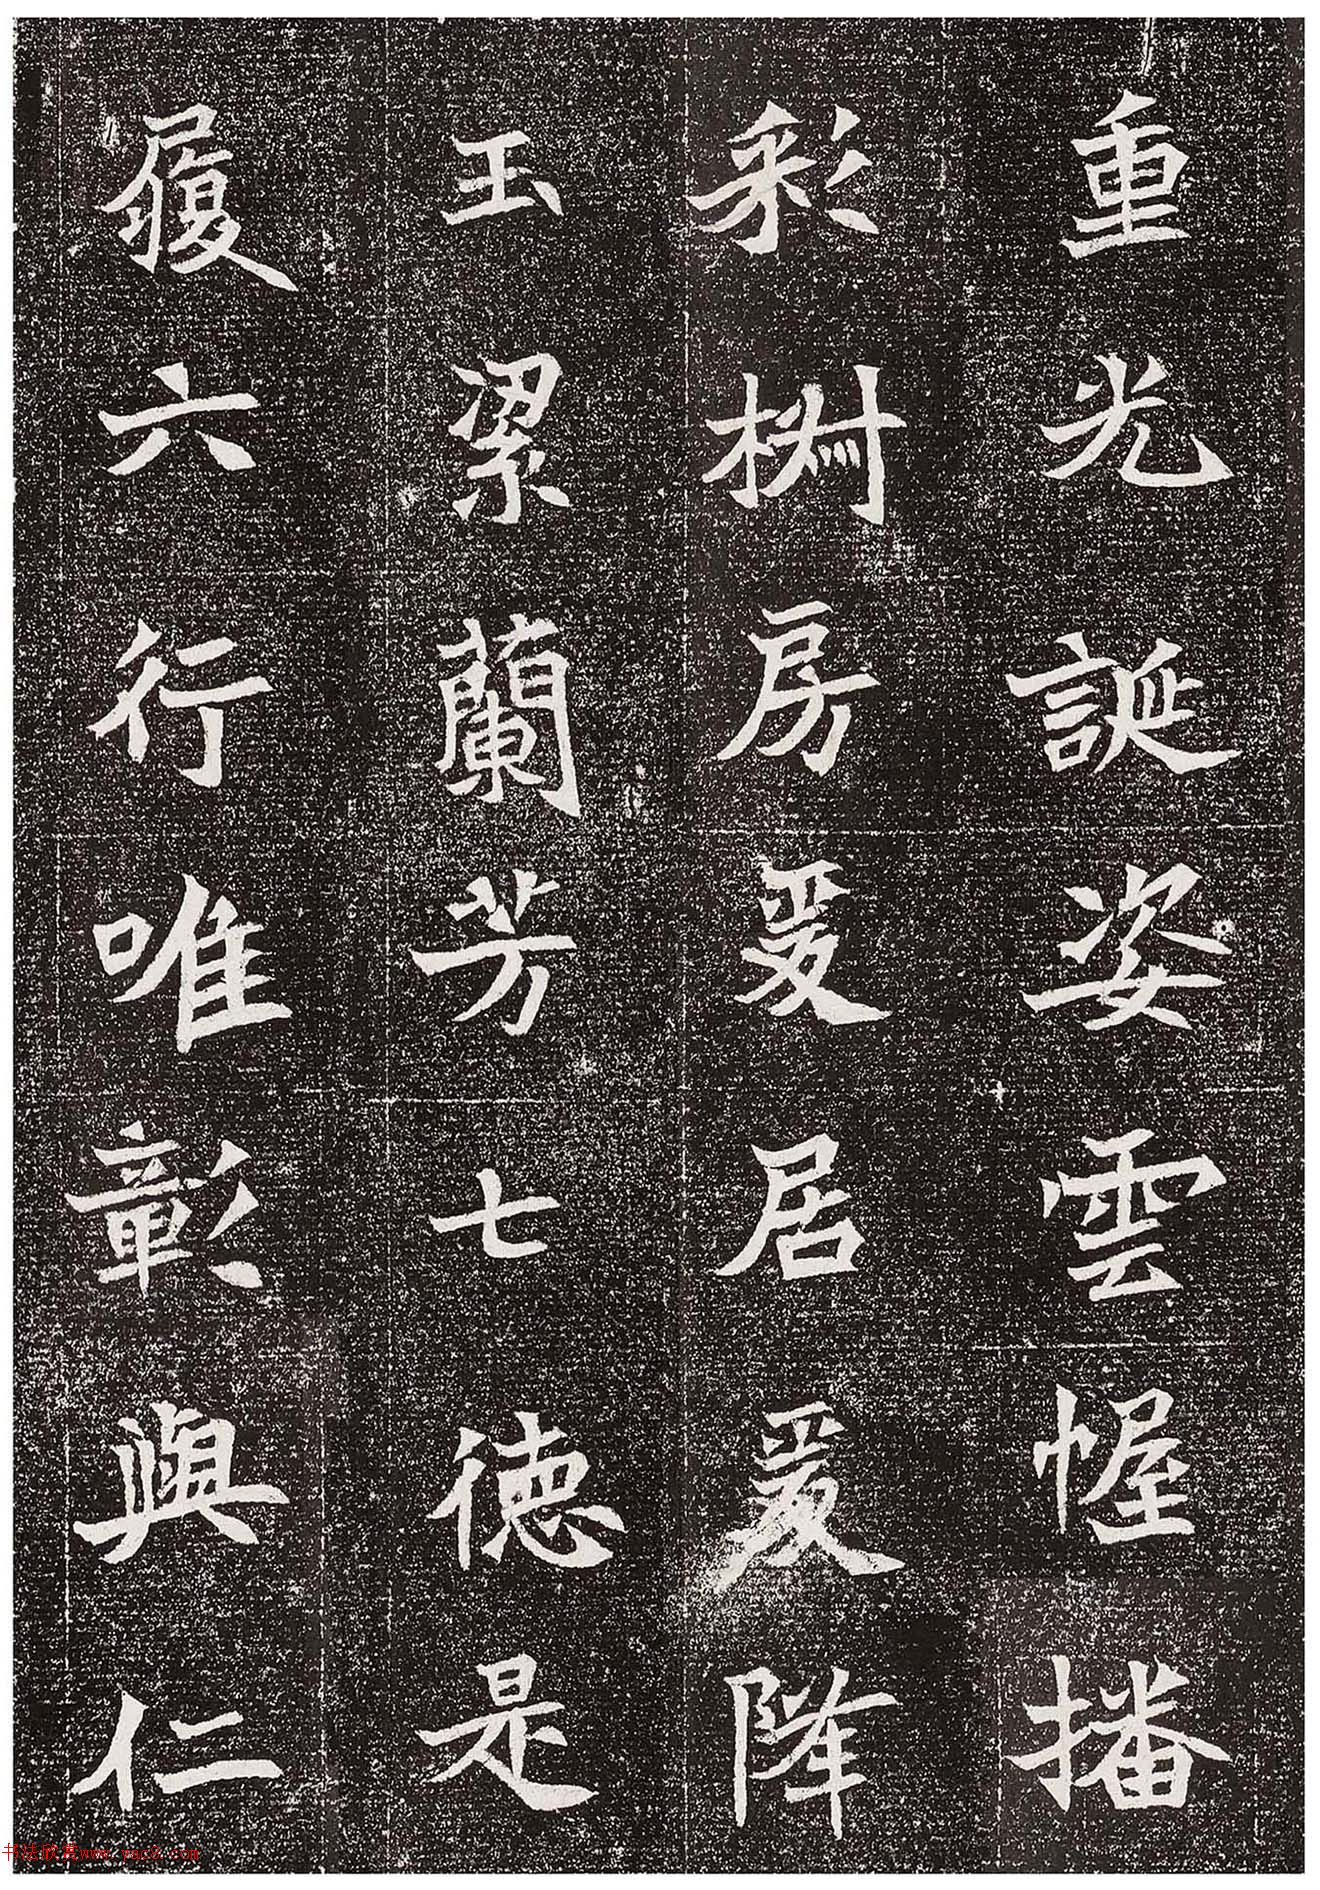 重光誕姿雲幄播
彩樹房爰居爰降
玉潔蘭芳七德是
履六行唯彰與仁
书法欣赏www.yac8.com